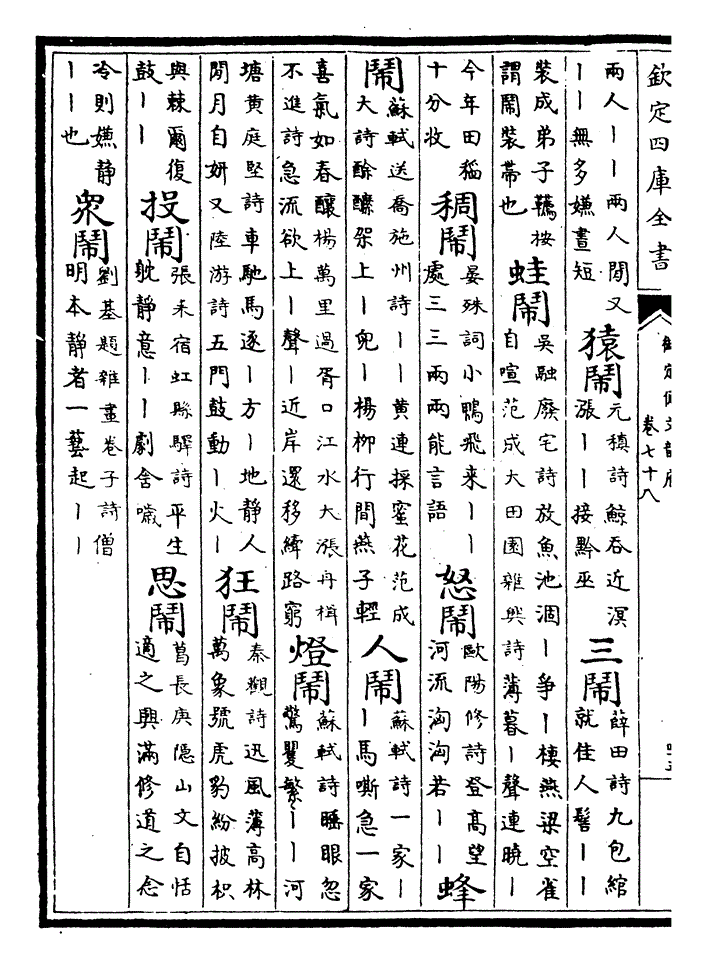 欽定四庫全書
御定佩文韻府
卷七十八
兩人丨丨兩人閒又
丨丨無多嫌晝短
猿鬧
元稹詩鯨吞近溟
漲丨丨接黔巫
三鬧
薛田詩九包綰
就佳人髻丨丨
裝成弟子按
謂鬧裝帶也
蛙鬧
吳融廢宅詩放魚池涸丨爭丨棲燕梁空雀
自喧范成大田園雜興詩薄暮丨聲連曉丨
今年田稻
十分收
稠鬧
晏殊詞小鴨飛来丨丨
處三三兩兩能言語
怒鬧
歐陽修詩登高望
河流洶洶若丨丨
蜂
鬧
蘇軾送喬施州詩丨丨黄連採蜜花范成
大詩酴醿架上丨兜丨楊柳行間燕子輕
人鬧
蘇軾詩一家丨
丨馬嘶急一家
喜氣如春釀楊萬里過胥口江水大漲舟楫
不進詩急流欲上丨聲丨近岸還移緯路窮
燈鬧
蘇軾詩睡眼忽
驚矍繁丨丨河
塘黄庭堅詩車馳馬逐丨方丨地静人
閒月自妍又陸游詩五門鼓動丨火丨
狂鬧
秦觀詩迅風薄高林
萬象號虎豹紛披枳
與棘爾復
鼓丨丨
投鬧
張耒宿虹縣驛詩平生
躭静意丨丨劇舍噦
思鬧
葛長庚隠山文自恬
適之興滿修道之念
冷則嫌静
丨丨也
衆鬧
劉基題雜畫卷子詩僧
明本静者一藝起丨丨